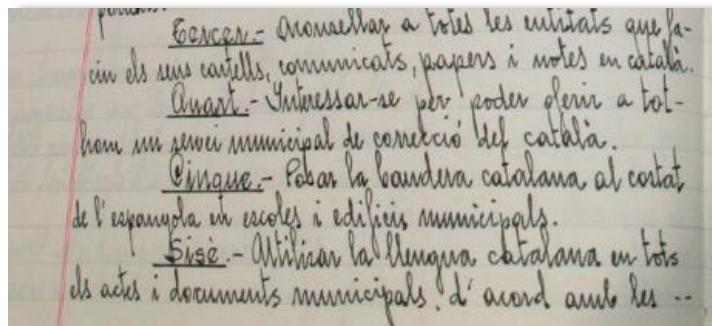 Tercer.- Aconsellar a totes les entitats que fa-
cin els seus cartells, comunicats, papers i notes en català.
Quart.- Interessar-se per poder oferir a tot-
hom un servei municipal de correcció del català.
Cinque.- Posar la bandera catalana al costat
de l'espanyola en escoles i edificis municipals.
Sisè.- Utilizar la llengua catalana en tots
els actes i documents municipals, d'acord amb les --